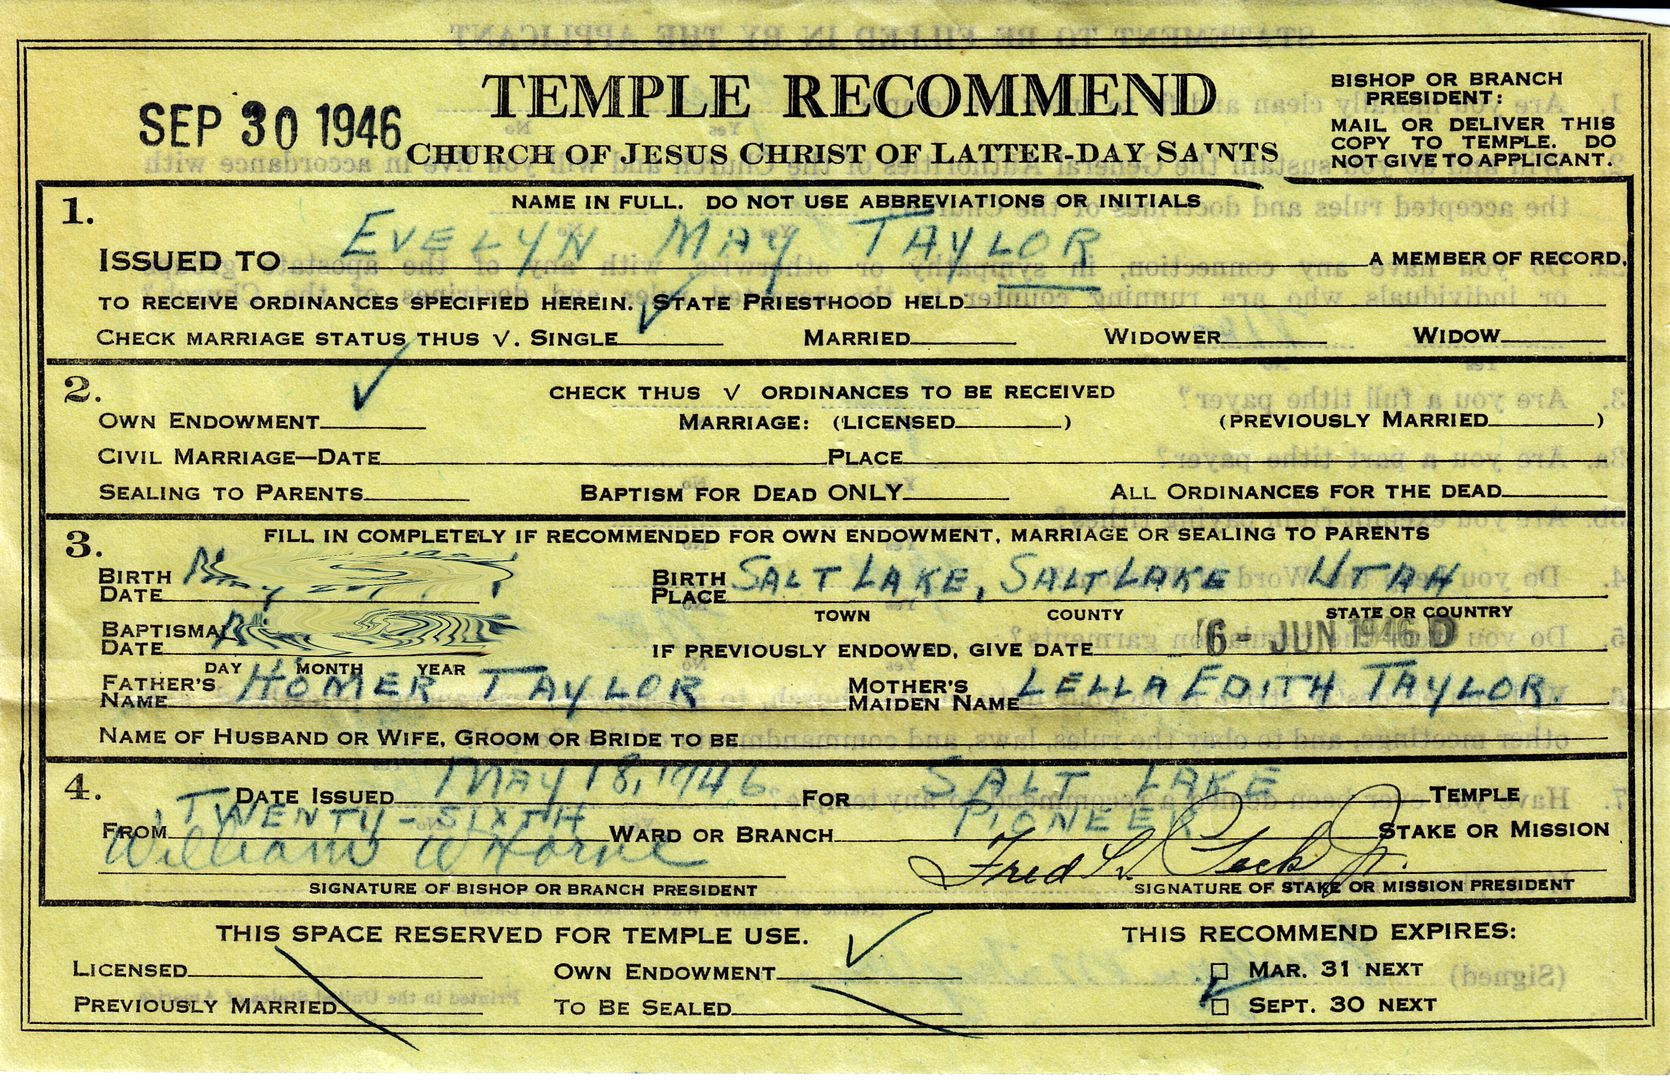 TEMPLE RECOMMEND
SEP 30 1946
CHURCH OF JESUS CHRIST OF LATTER-DAY SAINTS
BISHOP OR BRANCH
PRESIDENT:
MAIL OR DELIVER THIS
COPY TO TEMPLE. DO
NOT GIVE TO APPLICANT.
1. NAME IN FULL. DO NOT USE ABBREVIATIONS OR INITIALS
ISSUED TO EVELYN MAY TAYLOR A MEMBER OF RECORD,
TO RECEIVE ORDINANCES SPECIFIED HEREIN. STATE PRIESTHOOD HELD
CHECK MARRIAGE STATUS THUS √. SINGLE √ MARRIED WIDOWER WIDOW
2. CHECK THUS √ ORDINANCES TO BE RECEIVED
OWN ENDOWMENT √ MARRIAGE: (LICENSED ) (PREVIOUSLY MARRIED )
CIVIL MARRIAGE—DATE PLACE
SEALING TO PARENTS BAPTISM FOR DEAD ONLY ALL ORDINANCES FOR THE DEAD
3. FILL IN COMPLETELY IF RECOMMENDED FOR OWN ENDOWMENT, MARRIAGE OR SEALING TO PARENTS
BIRTH DATE BIRTH PLACE SALT LAKE, SALT LAKE UTAH
TOWN COUNTY STATE OR COUNTRY
BAPTISMAL DATE IF PREVIOUSLY ENDOWED, GIVE DATE 6 - JUN 1946 D
DAY MONTH YEAR
FATHER'S NAME HOMER TAYLOR MOTHER'S MAIDEN NAME LELLA EDITH TAYLOR.
NAME OF HUSBAND OR WIFE, GROOM OR BRIDE TO BE
4. DATE ISSUED MAY 18, 1946 FOR SALT LAKE TEMPLE
FROM TWENTY-SIXTH WARD OR BRANCH PIONEER STAKE OR MISSION
William W Horne Fred H. Peck Jr.
SIGNATURE OF BISHOP OR BRANCH PRESIDENT SIGNATURE OF STAKE OR MISSION PRESIDENT
THIS SPACE RESERVED FOR TEMPLE USE. THIS RECOMMEND EXPIRES:
LICENSED OWN ENDOWMENT √ MAR. 31 NEXT
PREVIOUSLY MARRIED TO BE SEALED √ SEPT. 30 NEXT